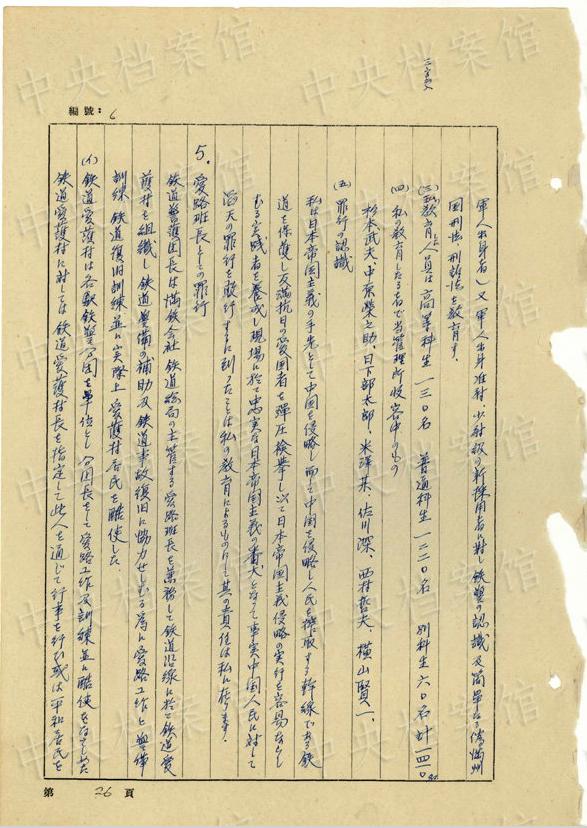 編號：6
軍人出身者）又軍人出身准尉、少尉級の新採用者に対し鉄警の認識及簡単なる偽満州
国刑法、刑訴法を教育す、
(三)私教育人員は高等科生一三〇名　普通科生一二〇名　別科生六〇名計一四一〇
(四)　私の教育したる者で当管理所收容中のもの
杉本武夫、中原榮之助、日下部太郎、米澤某、佐川深、西村哲夫、横山賢一、
(五)　罪行の認識
私は日本帝国主義の手先として中国を侵略し而して中国を侵略し人民を搾取する幹線である鉄
道を保護し反満抗日の愛国者を弾圧檢挙し以て日本帝国主義侵略の実行を容易ならし
むる実践者を養成し現場に於て忠実な日本帝国主義の番犬となって事実中国人民に対して
滔天の罪行を敢行するに到ったことは私の教育によるものにして其の責任は私に在ります。
5. 愛路班長としての罪行
鉄道警護団長は満鉄会社鉄道総局の主管する愛路班長を兼務して鉄道沿線に於て鉄道愛
護村を組織し鉄道警備の補助及鉄道事故復旧に協力せしむる為に愛路工作と警備
訓練、鉄道復旧訓練並に実際上愛護村居民を酷使した、
(イ)　鉄道愛護村は各駅鉄警分団を単位とし分団長をして愛路工作及訓練並に酷使をなさしめた
鉄道愛護村に対しては鉄道愛護村長を指定して此人を通じて行事を行ひ或は平和居民を
第 26 頁
中央档案馆